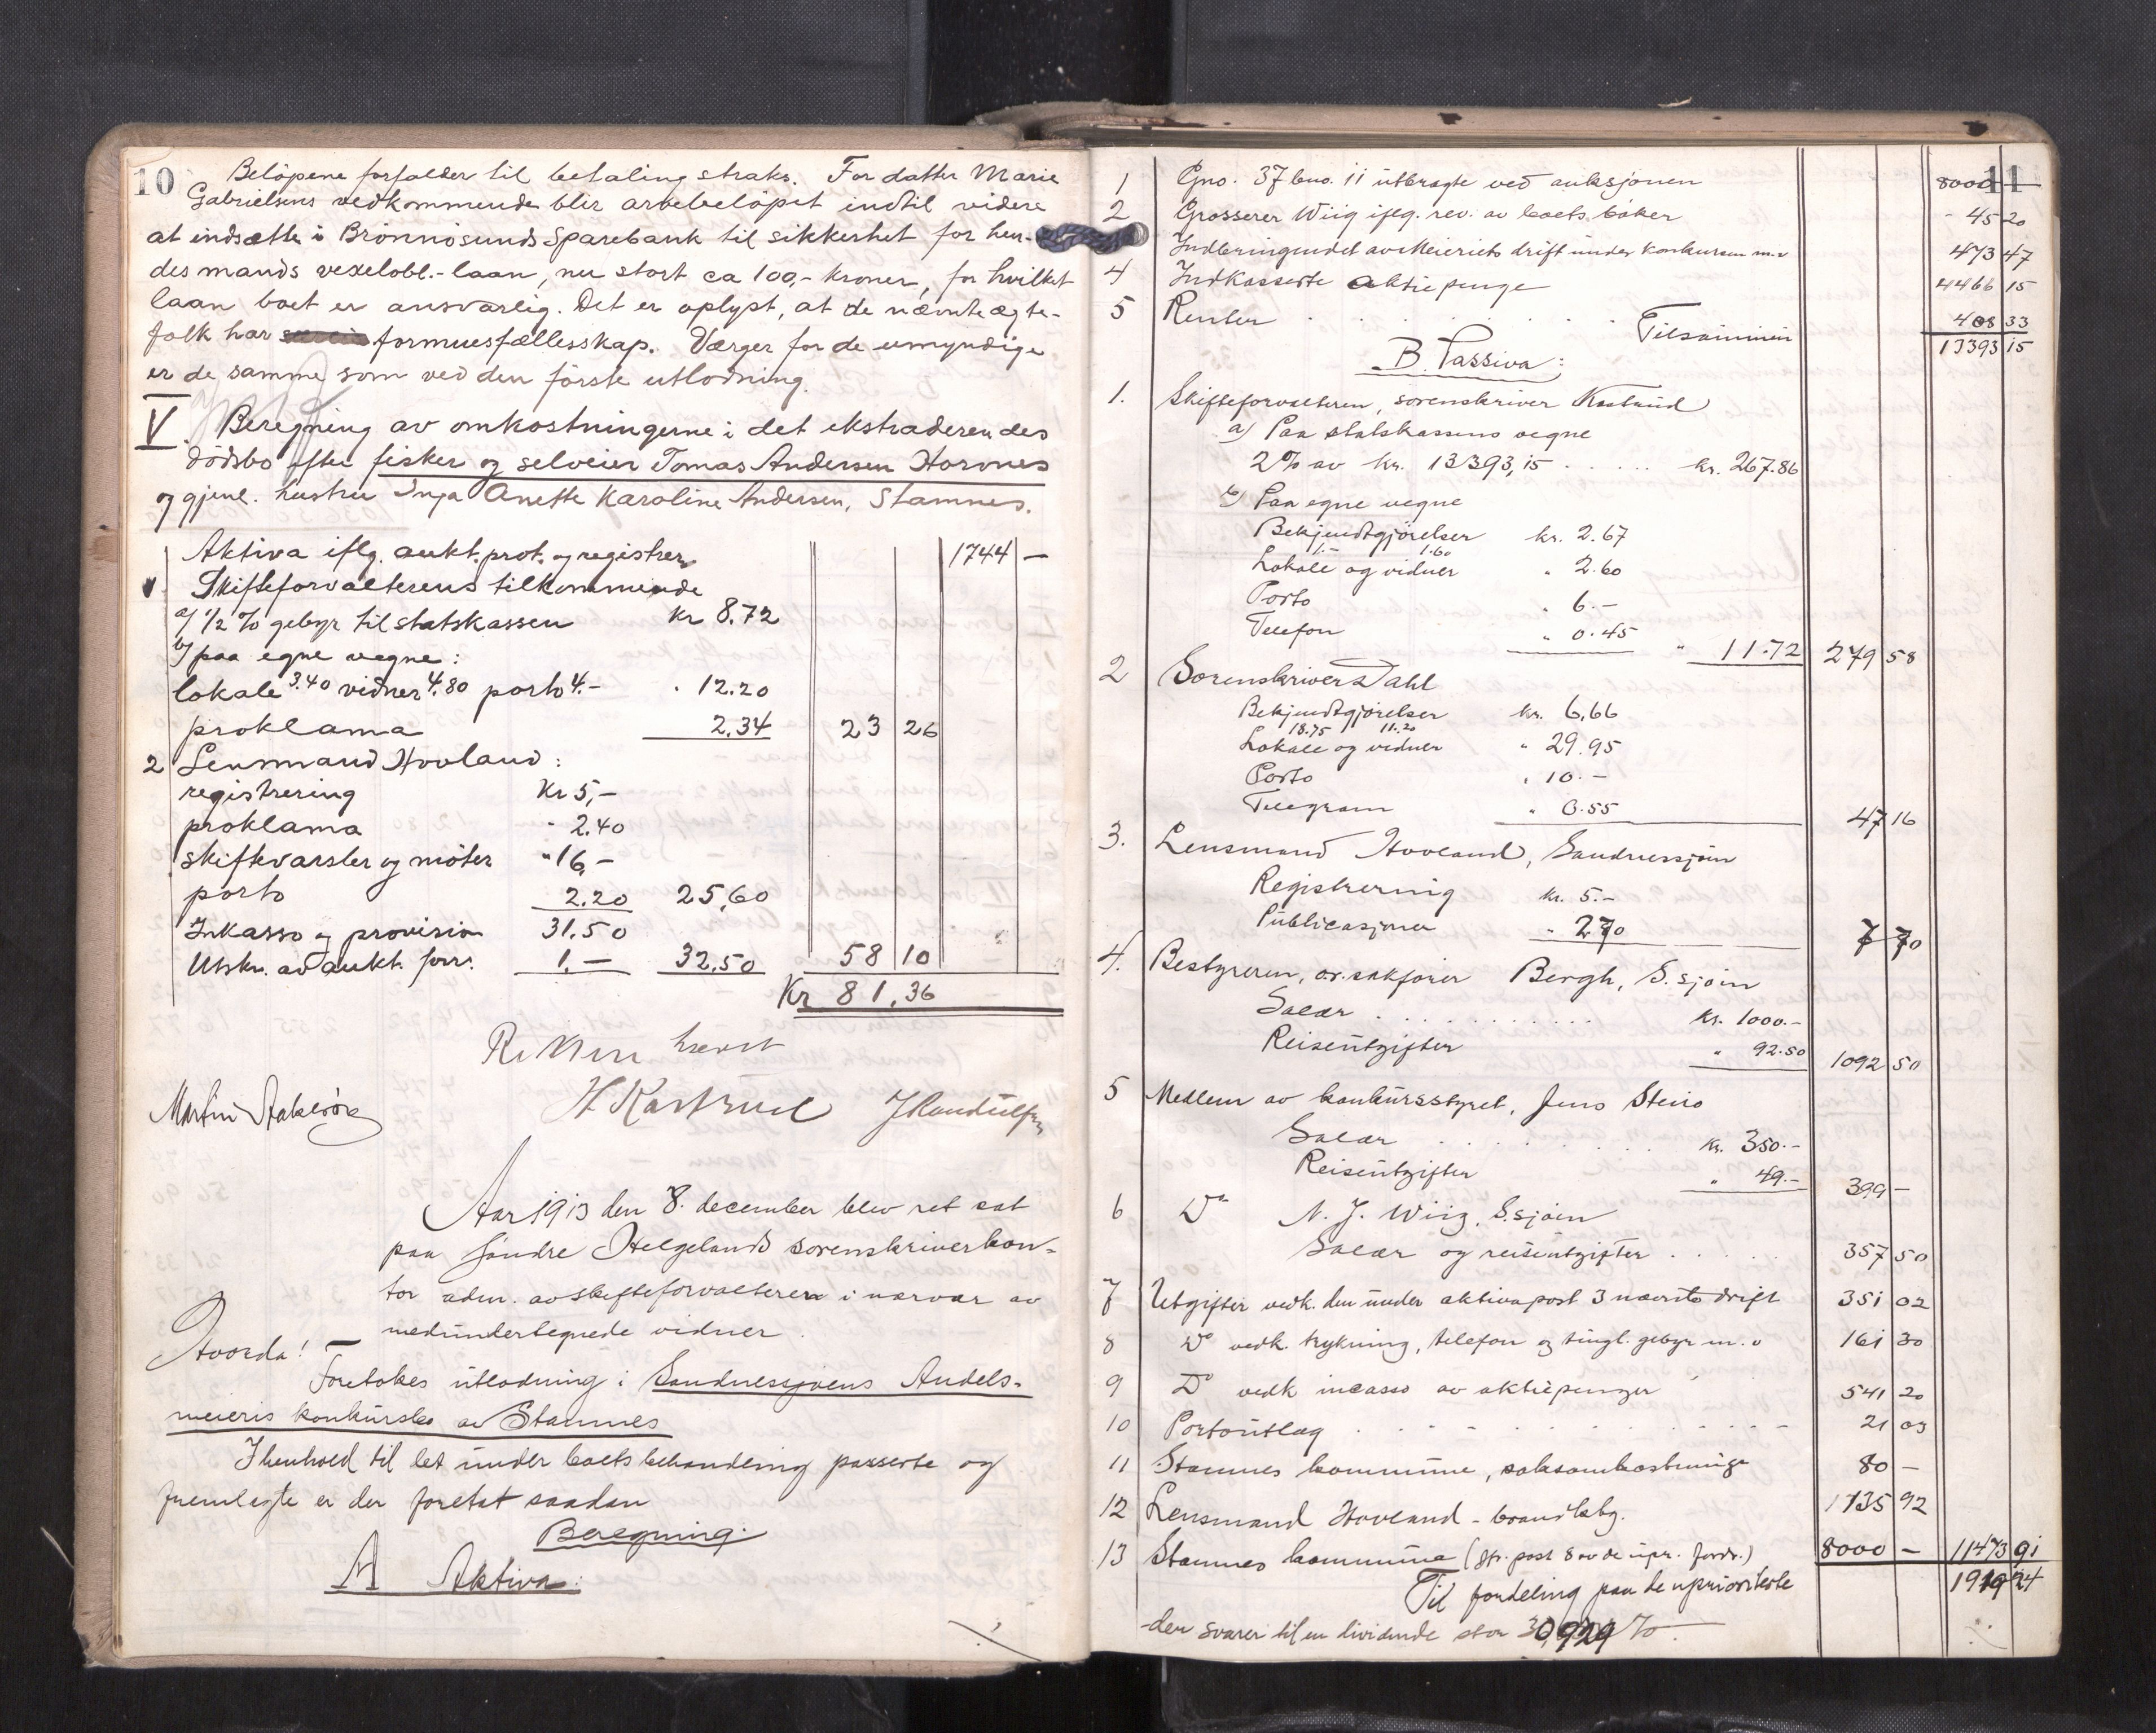 10
Beløpene forfalder til betaling straks. For datter Marie
Gabrielsens vedkommende blir arvebeløpet indtil videre
at indsætte i Brønnøsunds Sparebank til sikkerhet for hen-
des mands vexelobl.-laan, nu stort ca 100,- kroner, for hvilket
laan boet er ansvarlig. Det er oplyst, at de nævnte ægte-
folk har formuesfællesskap. Værger for de umyndige
er de samme som ved den første utlodning.
V. Beregning av omkostningerne i det ekstraderendes
dødsbo efter fisker og selveier Tomas Andersen Horvnes
og gjenl. hustru Inga Anette Karoline Andersen, Stamnes.
Aktiva iflg. aukt.prot. og registrer. 1744 —
1 Skifteforvalterens tilkommende
a) 1/2 % gebyr til statskassen Kr 8.72
b) paa egne vegne:
lokale 3.40 vidner 4.80 porto 4.- " 12.20
proklama 2.34 23 26
2 Lensmand Hovland:
registrering Kr 5,-
proklama " 2.40
skiftevarsler og møter " 16,-
porto 2.20 25,60
Inkasso og provision 31.50
Utskr. av aukt. forr. 1.- 32.50 58 10
Kr 81,36
H Kastrud
Aar 1913 den 8. december blev ret sat
paa Søndre Helgelands sorenskriverkon-
tor adm. av skifteforvalteren i nærvær av
medundertegnede vidner.
Hvorda! —
Foretokes utlodning i Sandnessjøens Andels-
meieris konkursbo av Stamnes
I henhold til det under boets behandling passerte og
fremlagte er der foretat saadan
Beregning:
A Aktiva:
11
1 Gno. 37 bno. 11 utbragte ved auksjonen 8000 —
2 Grosserer Wiig iflg. rev. av boets bøker 45 20
Indbringendet av Meieriets drift under konkursen m.v 473 47
4 Indkasserte aktiepenge 4466 15
5 Renter . . . . . . . . 408 33
Tilsammen 13393 15
B. Passiva:
1. Skifteforvalteren, sorenskriver Kastrud
a) Paa statskassens vegne
2% av kr. 13393,15 . . . . . kr. 267.86
b) Paa egne vegne
Bekjendtgjørelser kr. 2.67
1.- 1.60
Lokale og vidner " 2.60
Porto " 6.-
Telefon " 0.45 " 11.72 279 58
2 Sorenskriver Dahl
Bekjendtgjørelser kr. 6,66
18.75 11.20
Lokale og vidner " 29.95
Porto " 10.-
Telegram " 0.55 47 16
3. Lensmand Hovland, Sandnessjøen
Registrering kr. 5.-
Publicasjoner " 2.70 7 70
4. Bestyreren, o.r.sakfører Bergh, S.sjøen
Salær . . . . . . . . . . kr. 1000.-
Reiseutgifter " 92.50 1092 50
5 Medlem av konkursstyret, Jens Steiro
Salær . . . . . . . . kr. 350.-
Reiseutgifter " 49.- 399 -
6 Do N. J. Wiig, S.sjøen
Salær og reiseutgifter . . . . . 357 50
7 Utgifter vedk. den under aktivapost 3 nævnte drift 351 02
8 Do vedk. trykning, telefon og tingl. gebyr m. v 161 30
9 Do vedk incasso av aktiepenger 541 20
10 Portoutlæg . . . . . . . . 21 03
11 Stamnes kommune, saksomkostninger 80 -
12 Lensmand Hovland - 135 92
13 Stamnes kommune (jfr. post 8 av de upr. fordr.) 8000 - 11473 91
Til fordeling paa de uprioriterte 1919 24
der svarer til en dividende stor